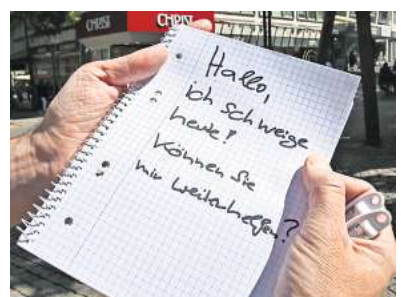 CHRIST
CHRIST
Hallo,
ich schweige
heute!
Können Sie
mir weiterhelfen?